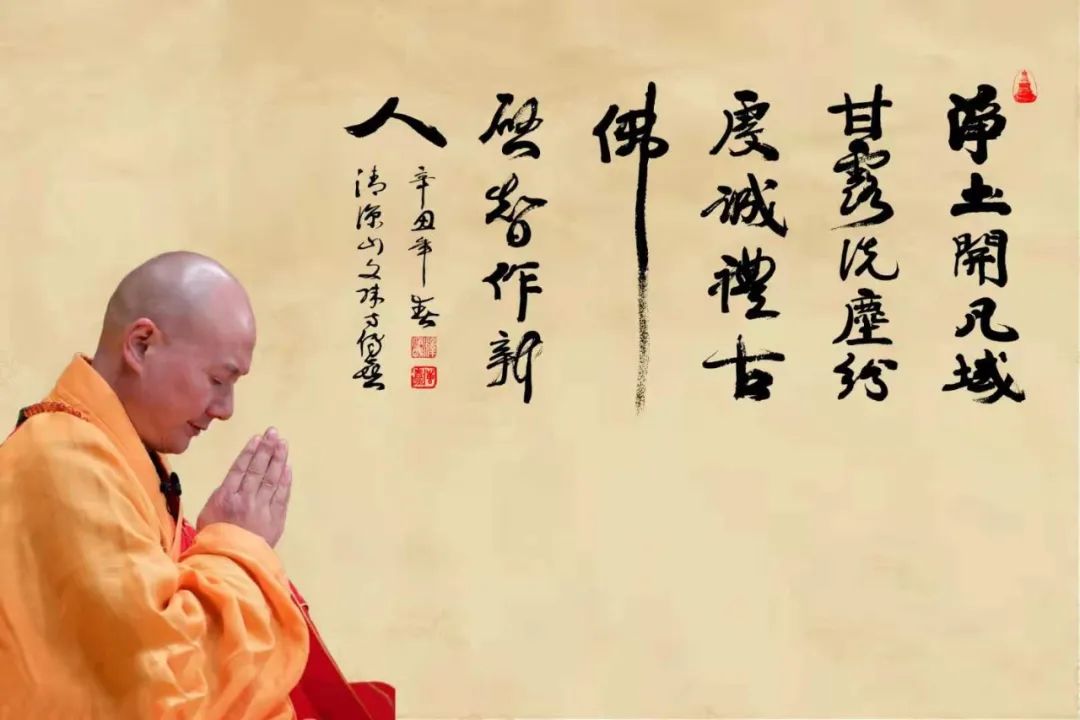 淨土開凡域
甘露洗塵紛
虔誠禮古
佛
啟智作新
人
辛丑年春
清凉山文殊寺傳